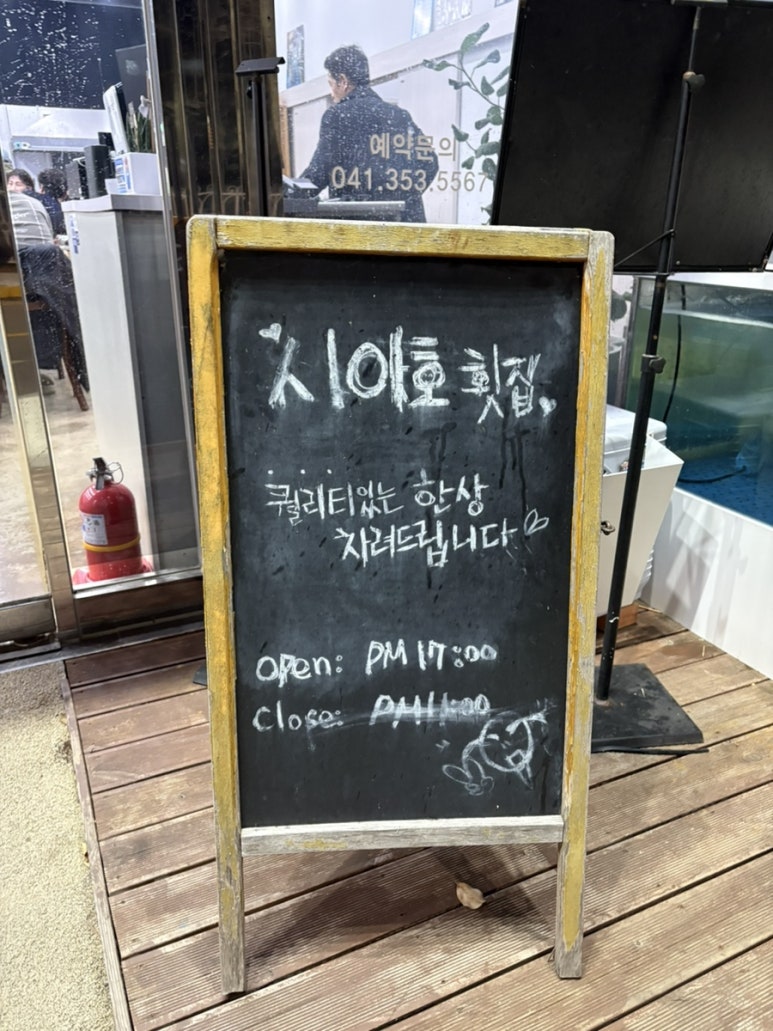 예약문의
041.353.5567
시야호 횟집
퀄리티있는 한상
차려드립니다
open: PM 17:00
close: PM 11:00